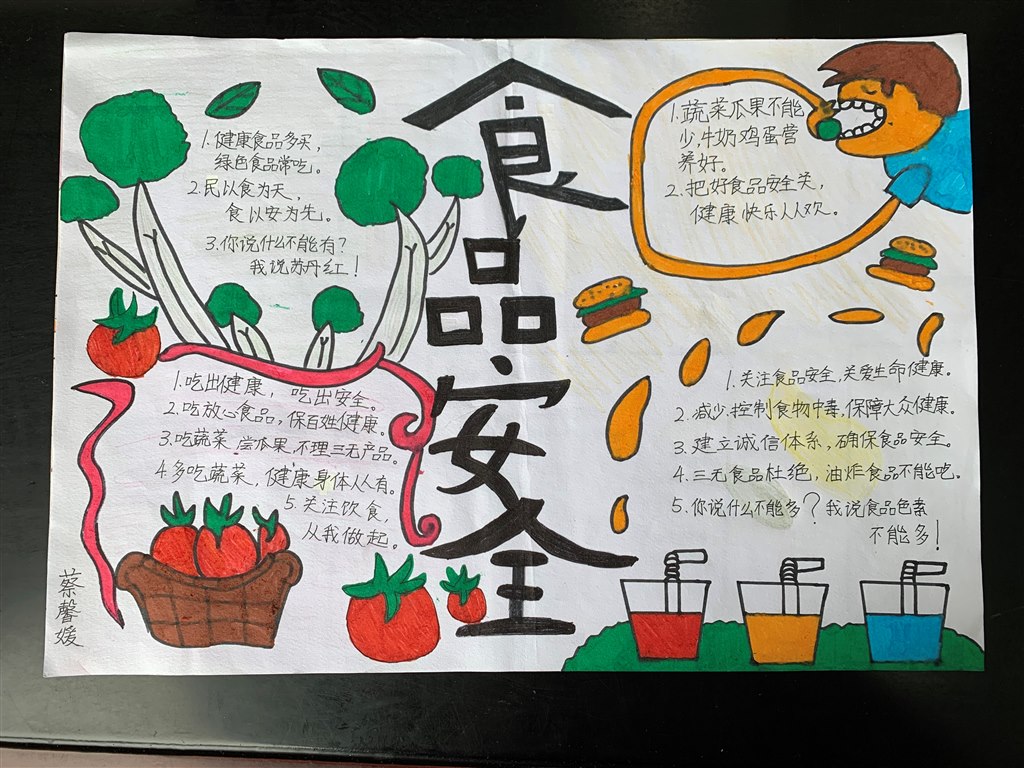 食品安全
1.健康食品多买,
绿色食品常吃。
2.民以食为天,
食以安为先。
3.你说什么不能有?
我说苏丹红!
1.蔬菜瓜果不能
少,牛奶鸡蛋营
养好。
2.把好食品安全关,
健康快乐人人欢。
1.吃出健康,吃出安全。
2.吃放心食品,保百姓健康。
3.吃蔬菜,尝瓜果,不理三无产品。
4.多吃蔬菜,健康身体人人有。
5.关注饮食,
从我做起。
1.关注食品安全,关爱生命健康。
2.减少、控制食物中毒,保障大众健康。
3.建立诚信体系,确保食品安全。
4.三无食品杜绝,油炸食品不能吃。
5.你说什么不能多?我说食品色素
不能多!
蔡馨媛